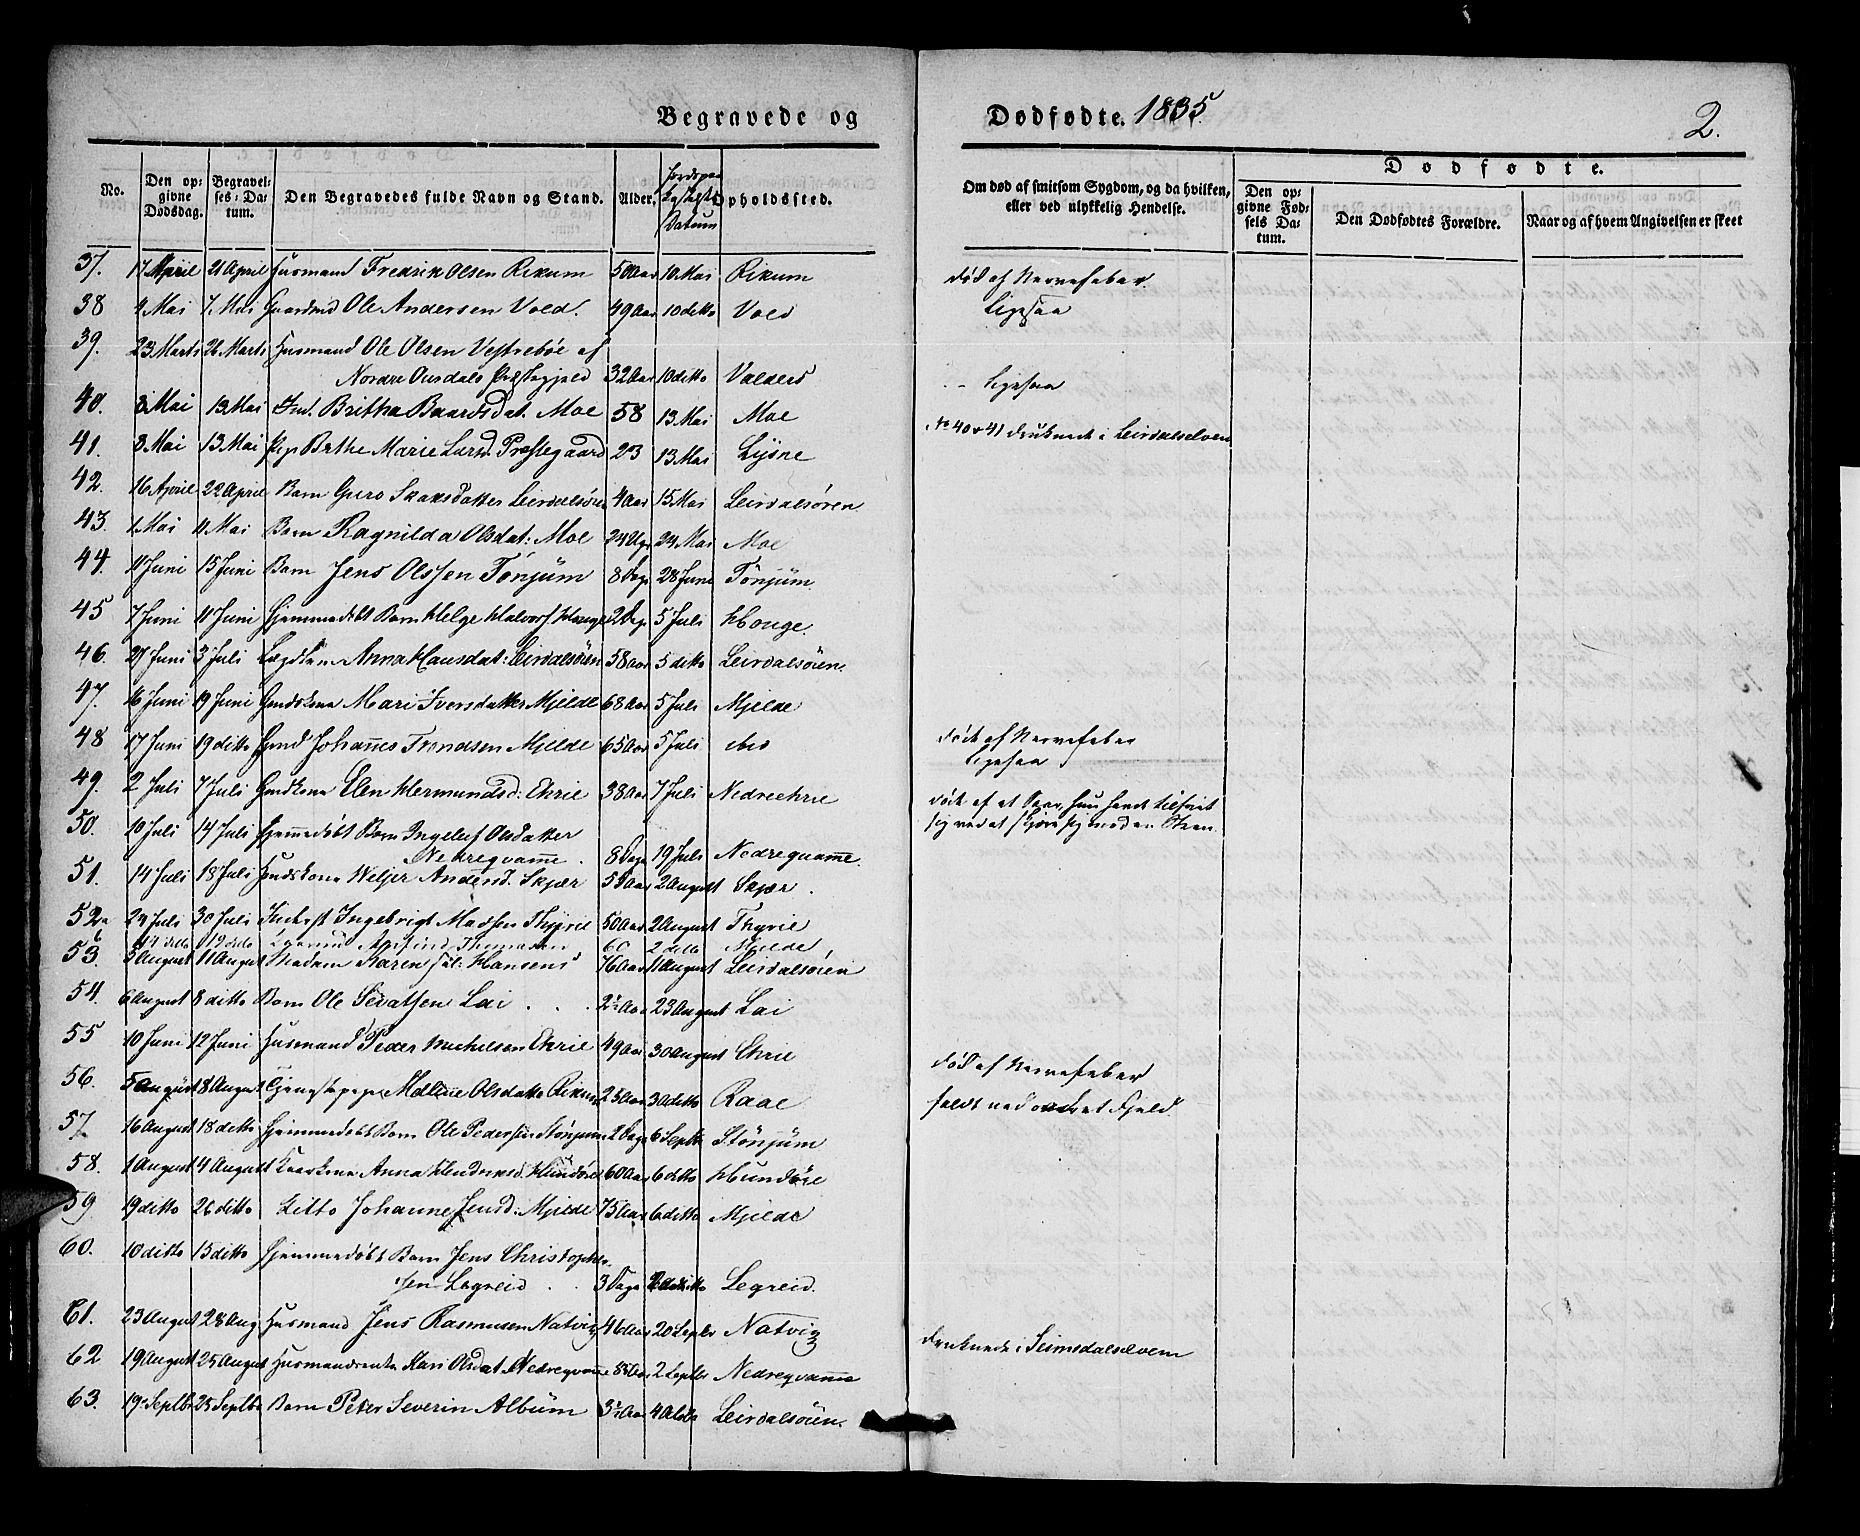 Begravede og Dødfødte. 1835. 2.
No. Den opgivne Dødsdag. Begravelses-Datum. Den Begravedes fulde Navn og Stand. Alder. Jordspaakastelses Datum Opholdssted. Om død af smitsom Sygdom, og da hvilken, eller ved ulykkelig Hendelse. Dødfødte. Den opgivne Fødsels Datum. Den Dødfødtes Forældre. Naar og af hvem Angivelsen er skeet
37. 17 April 21 April Husmand Fredrik Olsen Rikum 50 Aar 10 Mai Rikum død af Nervefeber
38 4 Mai 7. Mai Gaardmd Ole Andersen Vold. 49 Aar 10 ditto Vold Ligesaa
39. 23 Marts 26 Marts Husmand Ole Olsen Vestrebøe af
Nordre Ourdals Præstegjeld 32 Aar 10 ditto Valders -- Ligesaa
40. 8 Mai 13 Mai Ind. Britha Baardsdat. Moe 58 13 Mai Moe
41. 8 Mai 13 Mai Pige Brthe Marie Larsd. Præstegaard 23 13 Mai Lysne No 40 & 41 druknede i Leirdalselven
42. 16 April 22 April Barn Guro Skaksdatter Leirdalsøren 4 Aar 15 Mai Leirdalsøren
43. 1. Mai 11. Mai Barn Ragnilda Olsdat: Moe 24 Uger 24 Mai Moe
44. 11 Juni 15 Juni Barn Jens Olssen Tønjum 8 Dage 28 Juni Tønjum.
45 7 Juni 11 Juni Hjemmedøbt Barn Helge Halvors. Houge 2 Dage 5 Juli Houge.
46. 27 Juni 3 Juli Lægdkone Anna Hansdat: Leirdalsøren 58 Aar 5 ditto Leirdalsøren
47. 16 Juni 19 Juni Gmdkone Mari Iversdatter Mjelde 68 Aar 5 Juli Mjelde
48 17 Juni 19 ditto Johannes Trondsen Mjelde 65 Aar 5 Juli ibid døde af Nervefeber
Ligesaa
49. 2 Juli 7 Juli Gmdkone Elen Hermundsd: Ehrie 38 Aar 7 Juli Nedreehrie døde af et Saar, hun havde tilføiet
sig ved at skjære sig med en
50. 10 Juli 14 Juli Hjemmedøbt Barn Ingeleif Olsdatter
Nedreqvamme. 8 Dage 19 Juli Nedreqvamme.
51. 14 Juli 18 Juli Andersd. Skjær 55 Aar 2 August Skjær.
52 a 24 Juli 30 Juli Inderst Ingebrigt Madsen Thyrie 50 Aar 2 August Thyrie
b 14 ditto 19 ditto Thomassen 60 2 ditto Mjelde
53. 5 August 11 August Madam Karen sal: Hansens 76 Aar 11 August Leirdalsøren
54. 6 August 8 ditto Barn Ole Sevatsen Lai 2½ Aar 23 August Lai
55 10 Juni 12 Juni Husmand Peder Michelsen Ehrie 49 Aar 30 August Ehrie død af Nervefeber
56. 5 August 8 August Tjenestepige Malene Olsdatter Rikum 25 Aar 30 ditto Raae faldt ned over et Fjeld
57. 16 August 18 ditto Hjemmedøbt Barn Ole Pedersen Stønjum 2 Dage 6 Septbr Stønjum
58. 1 August 4 August Anna Hendriksd. Hundøre 60 Aar 6 ditto Hundøre
59 19 ditto 26 ditto Ditto Johanne Jensd: Mjelde 75 Aar 6 ditto Mjelde
60. 10 ditto 15 ditto Hjemmedøbt Barn Jens Christopher-
sen Legreid 3 Dage ditto Legreid.
61. 23 August 28 Aug. Husmand Jens Rasmusen Natvig 46 Aar 20 Septbr Natvig druknede i Seimsdalselven
62 19 August 25 August Husmandsenke Kari Olsdat. Nedreqvamme Aar 2 Septbr Nedreqvamme
63. 19. Septbr 25 Septbr Barn Peter Severin Album 3½ Aar 4 Octbr Leirdalsøren.